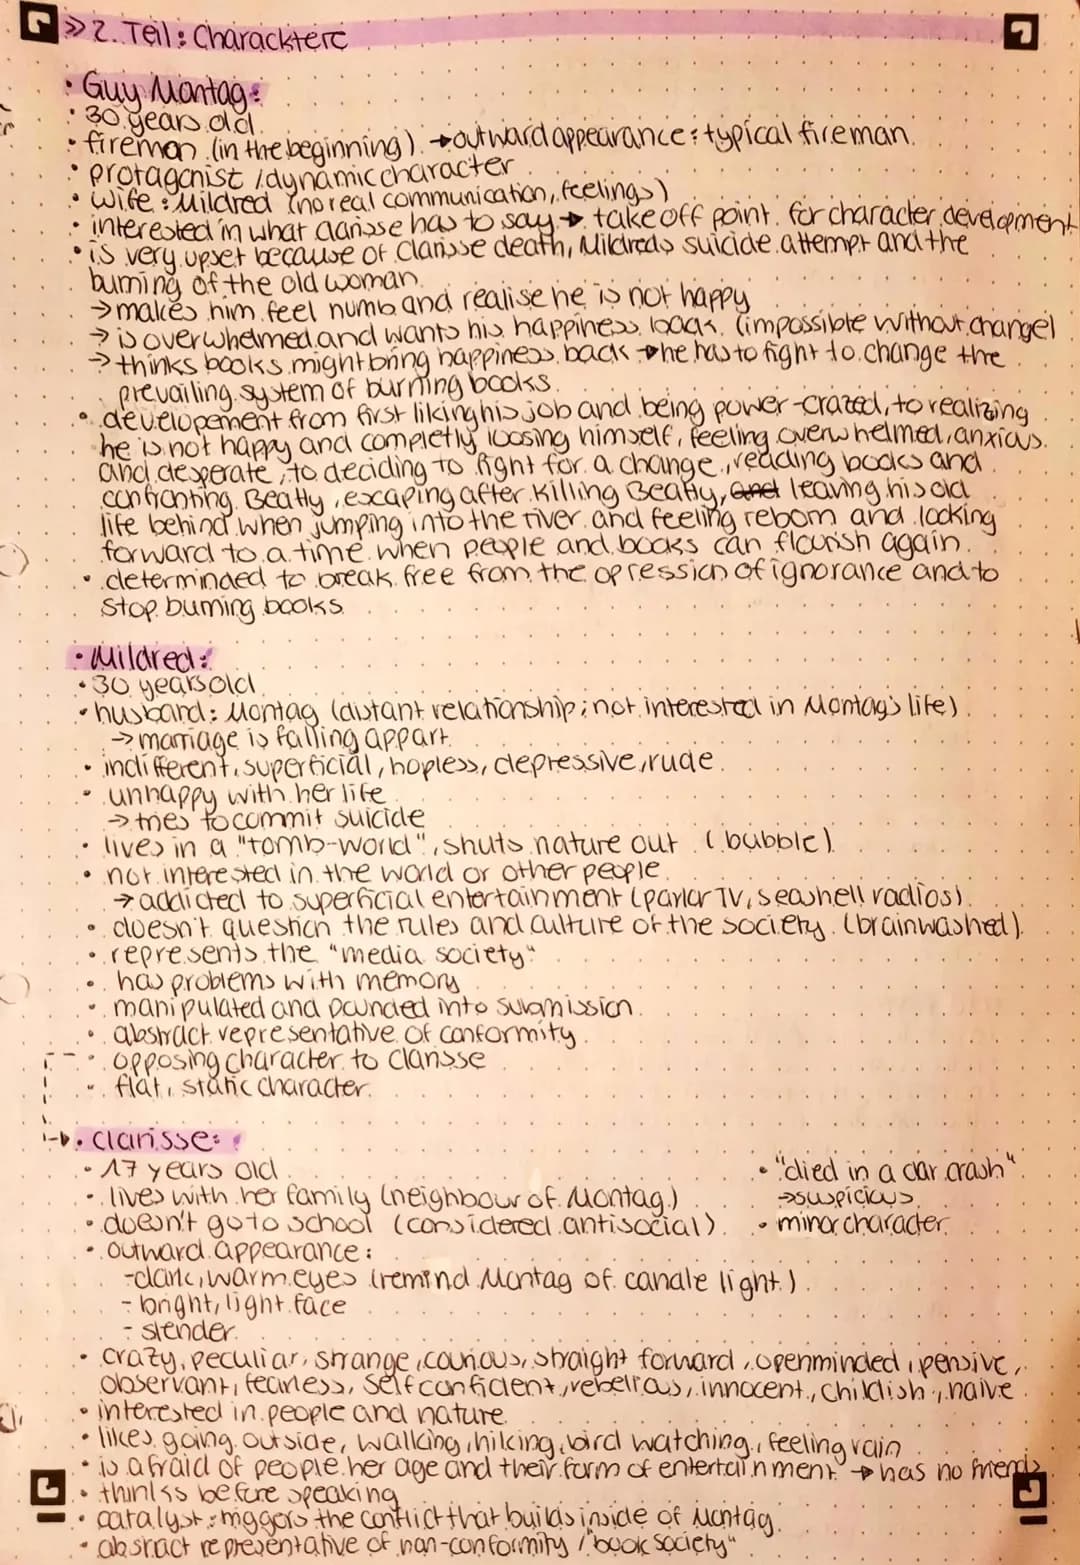 >> 2. Teil: Characktere
• Guy Montag:
• 30 years old
• fireman (in the beginning) → outward appearance: typical fireman
• protagonist / dynamic character
• wife: Mildred (no real communication, feelings)
• interested in what Clarisse has to say → take off point for character development
• is very upset because of Clarisse death, Mildreds suicide attempt and the
burning of the old woman
→ makes him feel numb and realise he is not happy
→ is overwhelmed and wants his happiness back (impossible without change)
→ thinks books might bring happiness back → he has to fight to change the
prevailing system of burning books
• developement from first liking his job and being power-crazed, to realizing
he is not happy and completly loosing himself, feeling overwhelmed, anxius
and desperate, to deciding to fight for a change, reading books and
confronting Beatty, escaping after killing Beatty, and leaving his old
life behind when jumping into the river and feeling reborn and looking
forward to a time when people and books can flourish again
• determinded to break free from the opression of ignorance and to
stop burning books
• Mildred:
• 30 years old
• husband: Montag (distant relationship; not interested in Montag's life)
→ marriage is falling appart
• indifferent, superficial, hopless, depressive, rude
• unhappy with her life
→ tries to commit suicide
• lives in a "tomb-world", shuts nature out (bubble)
• not interested in the world or other people
→ addicted to superficial entertainment (parlor TV, seashell radios)
• doesn't question the rules and culture of the society (brainwashed)
• represents the "media society"
• has problems with memory
• manipulated and pounded into submission
• abstract representative of conformity
• opposing character to Clarisse
• flat, static character
• Clarisse:
• 17 years old
• lives with her family (neighbour of Montag)
• doesn't go to school (considered antisocial)
• "died in a car crash"
→ suspicious
• minor character
• outward appearance:
- dark, warm eyes (remind Montag of candle light)
- bright, light face
- slender
• crazy, peculiar, strange, courious, straight forward, openminded, pensive,
observant, fearless, selfconfident, rebellious, innocent, childish, naive
• interested in people and nature
• likes going outside, walking, hiking, bird watching, feeling rain
• is afraid of people her age and their form of entertainment → has no friends
• thinks before speaking
• catalyst: triggers the conflict that builds inside of Montag
• abstract representative of non-conformity / "book society"